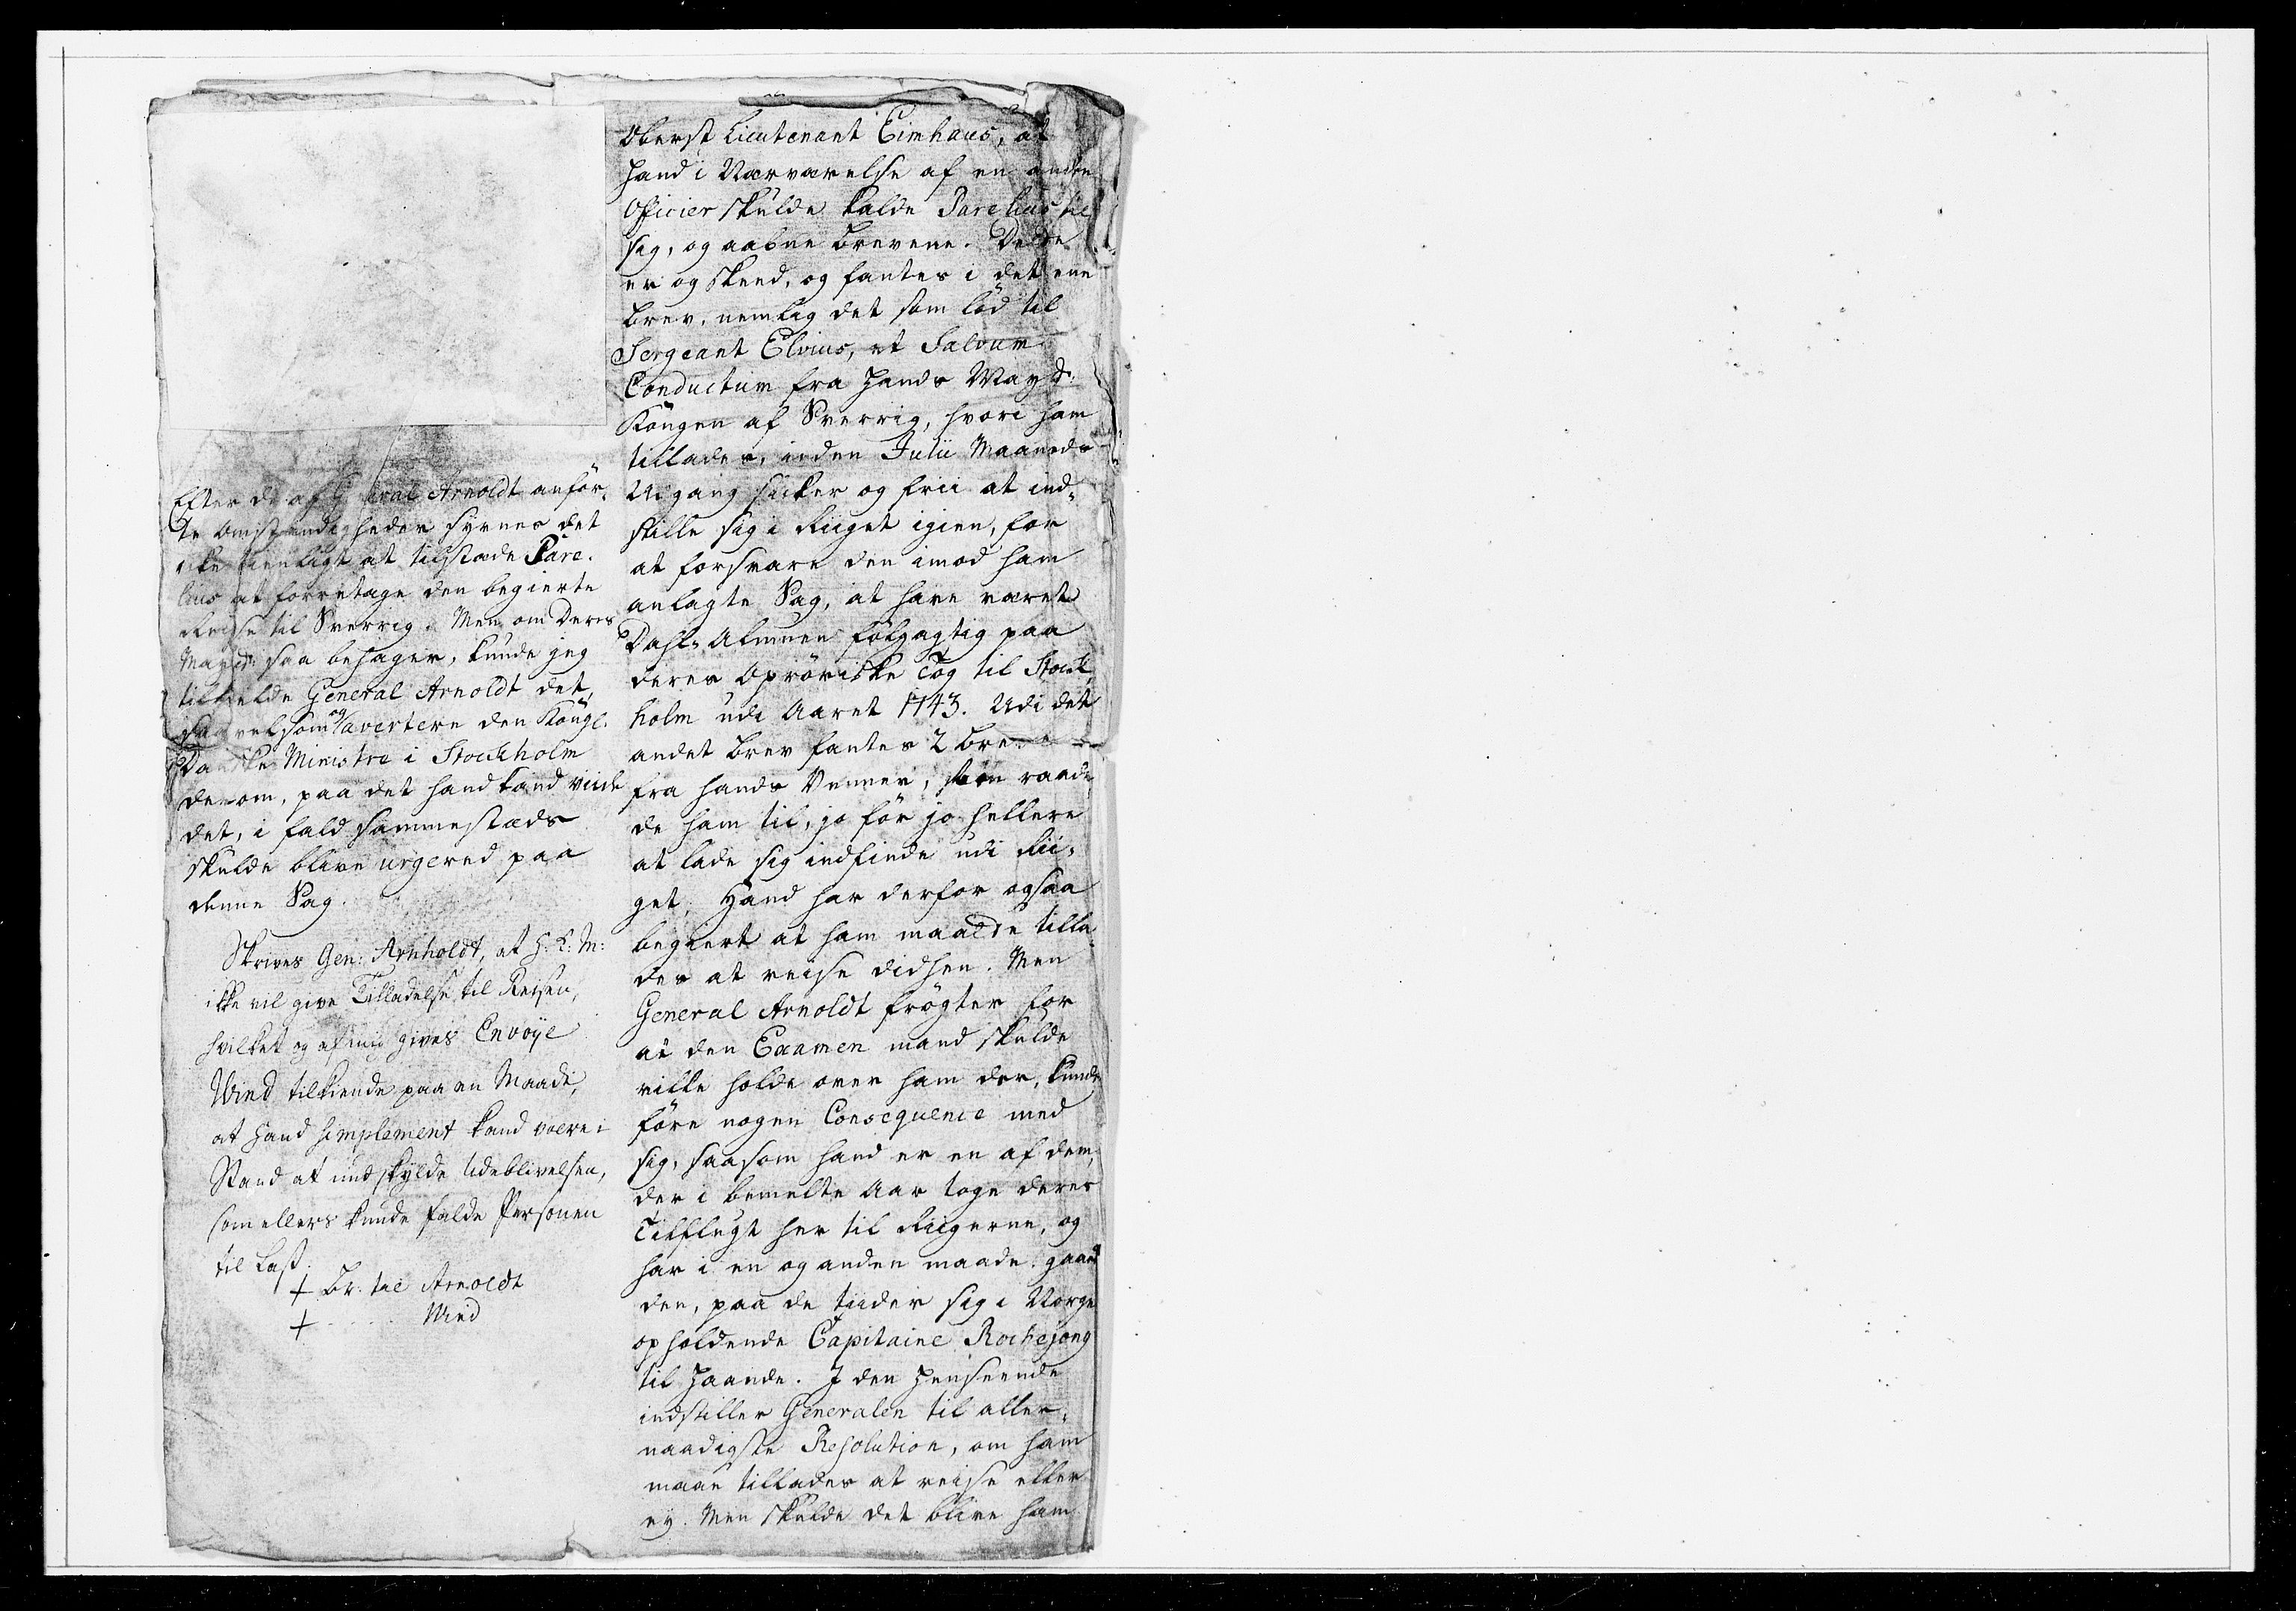 Oberst Lieutenant Eimhaus, at
hand i Nærværelse af en anden
Officier skulde kalde Parelius til
sig, og aabne brevene. Dette
er og skeed, og fantes i det ene
brev, nemlig det som lød til
Sergeant Elvius, et Salvum
Conductum fra Hands Mayst:
Kongen af Sverrig, hvori ham
tillades, inden Julii Maaneds
Udgang sikker og frii at ind-
stille sig i Riiget igien, for
at forsvare den imod ham
anlagte Sag, at have været
Dahl-Almuen følgagtig paa
deres Oprøriske Tog til Stock-
holm udi Aaret 1743. Udi det
andet brev fantes 2 breve
fra hands Venner, som raade-
de ham til, jo før jo hellere
at lade sig indfinde udi Rii-
get. Hand har derfor ogsaa
begiert at ham maatte tilla-
des at reise didhen. Men
General Arnoldt frøgter for
at den Examen mand skulde
ville holde over ham der, kunde
føre nogen Consequence med
sig, saasom hand er en af dem,
der i bemelte Aar toge deres
Tilflugt her til Riigerne, og
har i en og anden maade gaaed
den, paa de tiider sig i Norge
opholdende Capitaine Rochejong
til Haande. I den Henseende
indstiller Generalen til aller-
naadigste Resolution, om ham
maae tillades at reise eller
ey. Men skulde det blive ham
Efter de af General Arnoldt anför-
te Omstændigheder synes det
ikke tienligt at tilstæde Pare-
lius at foretage den begierte
Reise til Sverrig. Men om Deres
Mayst: saa behager, kunde jeg
tilmelde General Arnoldt det,
saavelsom og avertere den Kongl.
Danske Ministre i Stockholm
derom, paa det hand kand viide
det, i fald sammestæds
skulde blive urgered paa
denne Sag.
Skrives Gen: Arnholdt, at H. K: M:
ikke vil give Tilladelse til Reisen,
hvilket og af mig gives Envoÿe
Wind tilkiende paa en Maade,
at hand simplement kand være i
Stand at undskylde Udeblivelsen,
som ellers kunde falde Personen
til Last.
+ Br. til Arnoldt
+ ..... Wind